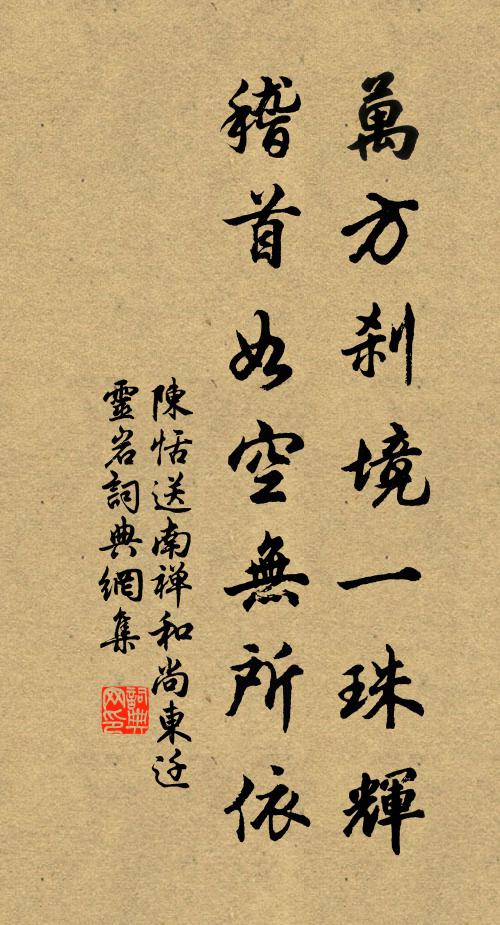 萬方剎境一珠輝
稽首如空無所依
陳恬送南禅和尚東迁
靈岩詞典網集
詞典网印